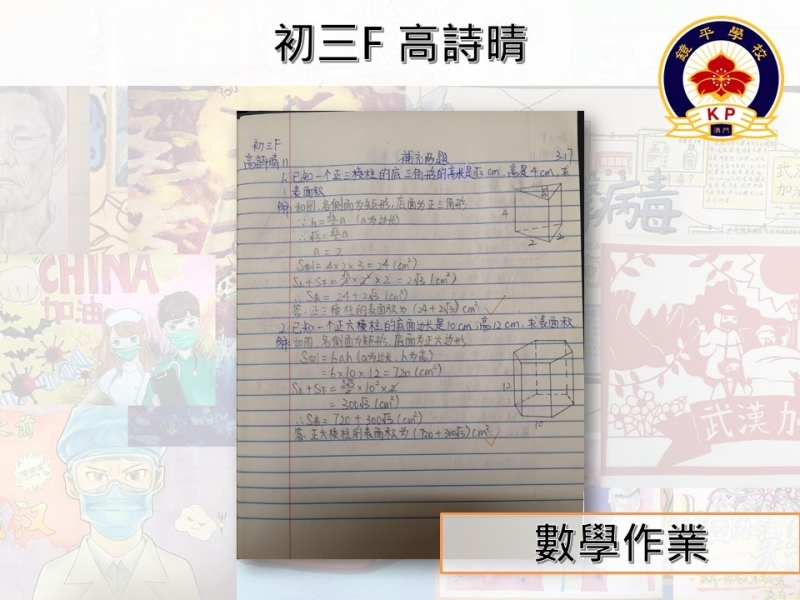 初三F 高詩晴
鏡平學校
KP
澳門
初三F
高詩晴 11
補充兩題
3.17
1. 已知一个正三棱柱的底三角形的高长是√3 cm, 高是4cm, 求
表面积
解: 如图, 各侧面为矩形, 底面为正三角形
∵ h = √3/2 a (a为边长)
∴ √3 = √3/2 a
a = 2
S侧 = 4×2×3 = 24 (cm²)
= 2√3 (cm²)
∴ S表 = 24+2√3 (cm²)
答: 正三棱柱的表面积为 (24+2√3) cm²
4
2
2
2. 已知一个正六棱柱的底面边长是10cm, 高12cm, 求表面积
解: 如图, 各侧面为矩形, 底面为正六边形
S侧 = 6ah (a为边长, h为高)
= 6×10×12 = 720 (cm²)
= 300√3 (cm²)
∴ S表 = 720+300√3 (cm²)
答: 正六棱柱的表面积为 (720+300√3) cm²
12
10
CHINA
加油
病毒
武漢加
數學作業